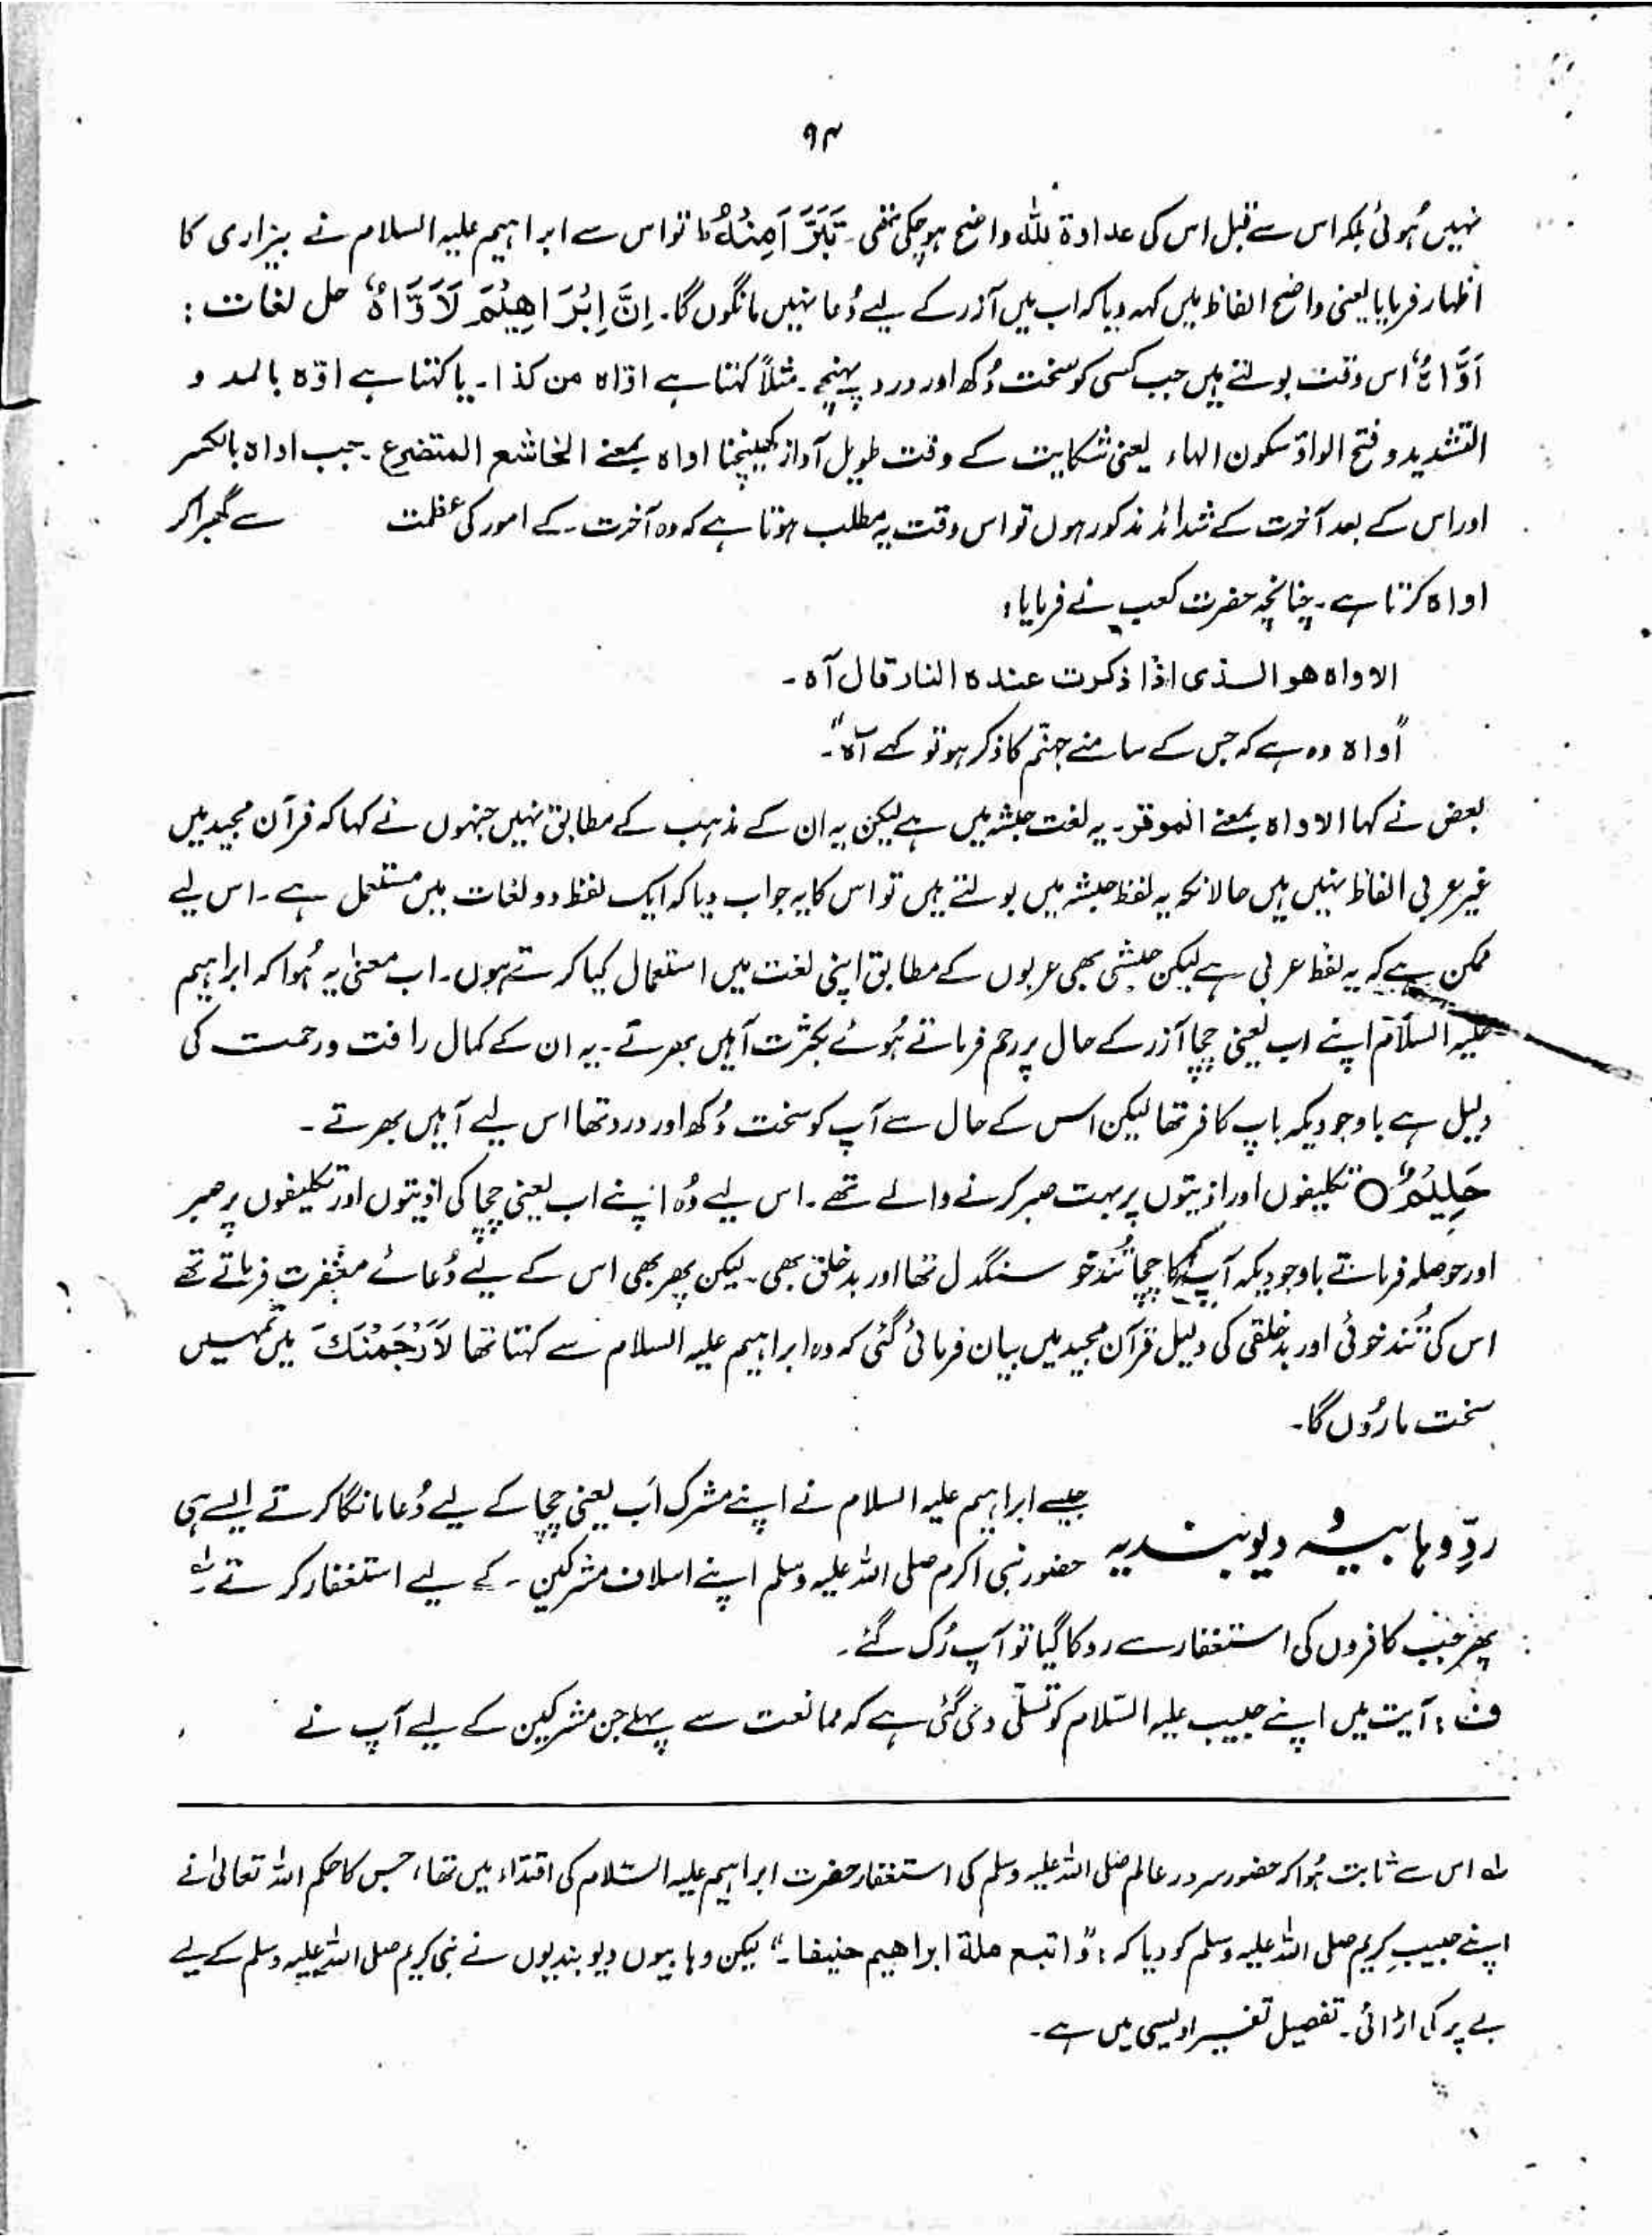 ۹۴
نہیں ہُوئی بلکہ اس سے قبل اس کی عداوۃ للہ واضح ہو چکی تھی۔ تَبَرَّ اَمِنْهُ ط تو اس سے ابراہیم علیہ السلام نے بیزاری کا
اظہار فرمایا یعنی واضح الفاظ میں کہہ دیا کہ اب میں آزر کے لیے دُعا نہیں مانگوں گا۔ اِنَّ اِبْرَاهِيْمَ لَاَوَّاهٌ حل لغات :
اَوَّاهٌ اس وقت بولتے ہیں جب کسی کو سخت دُکھ اور درد پہنچے۔ مثلاً کہتا ہے اوّاہ من کذا۔ یا کہتا ہے اوّہ بالمد و
التشدید و فتح الواؤ سکون الہاء یعنی شکایت کے وقت طویل آواز کھینچنا اواہ بمعنے الخاشع المتضرع۔ جب اواہ بالکسر
اور اس کے بعد آخرت کے شدائد مذکور ہوں تو اس وقت یہ مطلب ہوتا ہے کہ وہ آخرت کے امور کی عظمت سے گھبرا کر
اواہ کرتا ہے۔ چنانچہ حضرت کعب نے فرمایا :
الاواه هو الذى اذا ذكرت عنده النار قال آه۔
"اَواہ وہ ہے کہ جس کے سامنے جہنّم کا ذکر ہو تو کہے آہ"۔
بعض نے کہا الاواہ بمعنے الموقن۔ یہ لغت حبشہ میں ہے لیکن یہ ان کے مذہب کے مطابق نہیں جنہوں نے کہا کہ قرآن مجید میں
غیر عربی الفاظ نہیں ہیں حالانکہ یہ لفظ حبشہ میں بولتے ہیں تو اس کا یہ جواب دیا کہ ایک لفظ دو لغات میں مستعمل ہے۔ اس لیے
ممکن ہے کہ یہ لفظ عربی ہے لیکن حبشی بھی عربوں کے مطابق اپنی لغت میں استعمال کیا کرتے ہوں۔ اب معنیٰ یہ ہُوا کہ ابراہیم
علیہ السلام اپنے اب یعنی چچا آزر کے حال پر رحم فرماتے ہُوئے بکثرت آہیں بھرتے۔ یہ ان کے کمال رافت و رحمت کی
دلیل ہے باوجودیکہ باپ کافر تھا لیکن اس کے حال سے آپ کو سخت دُکھ اور درد تھا اس لیے آہیں بھرتے۔
حَلِيْمٌ ○ تکلیفوں اور اذیتوں پر بہت صبر کرنے والے تھے۔ اس لیے وُہ اپنے اب یعنی چچا کی اذیتوں اور تکلیفوں پر صبر
اور حوصلہ فرماتے باوجودیکہ آپ کا چچا تُندخو سنگدل تھا اور بدخلق بھی۔ لیکن پھر بھی اس کے لیے دُعائے مغفرت فرماتے تھے
اس کی تُندخوئی اور بدخلقی کی دلیل قرآن مجید میں بیان فرمائی گئی کہ وہ ابراہیم علیہ السلام سے کہتا تھا لَاَرْجُمَنَّكَ میں تمہیں
سخت ماروُں گا۔
ردِّ وہابیہ و دیوبندیہ جیسے ابراہیم علیہ السلام نے اپنے مشرک اَب یعنی چچا کے لیے دُعا مانگا کرتے ایسے ہی
حضور نبی اکرم صلی اللہ علیہ وسلم اپنے اسلاف مشرکین کے لیے استغفار کرتے لہ
پھر جب کافروں کی استغفار سے روکا گیا تو آپ رُک گئے۔
ف : آیت میں اپنے حبیب علیہ السّلام کو تسلّی دی گئی ہے کہ ممانعت سے پہلے جن مشرکین کے لیے آپ نے
لہ اس سے ثابت ہُوا کہ حضور سرور عالم صلی اللہ علیہ وسلم کی استغفار حضرت ابراہیم علیہ السّلام کی اقتداء میں تھا، جس کا حکم اللہ تعالیٰ نے
اپنے حبیبِ کریم صلی اللہ علیہ وسلم کو دیا کہ : "واتبع ملة ابراهيم حنيفا۔" لیکن وہابیوں دیوبندیوں نے نبی کریم صلی اللہ علیہ وسلم کے لیے
بے پر کی اڑائی۔ تفصیل تفسیر اویسی میں ہے۔